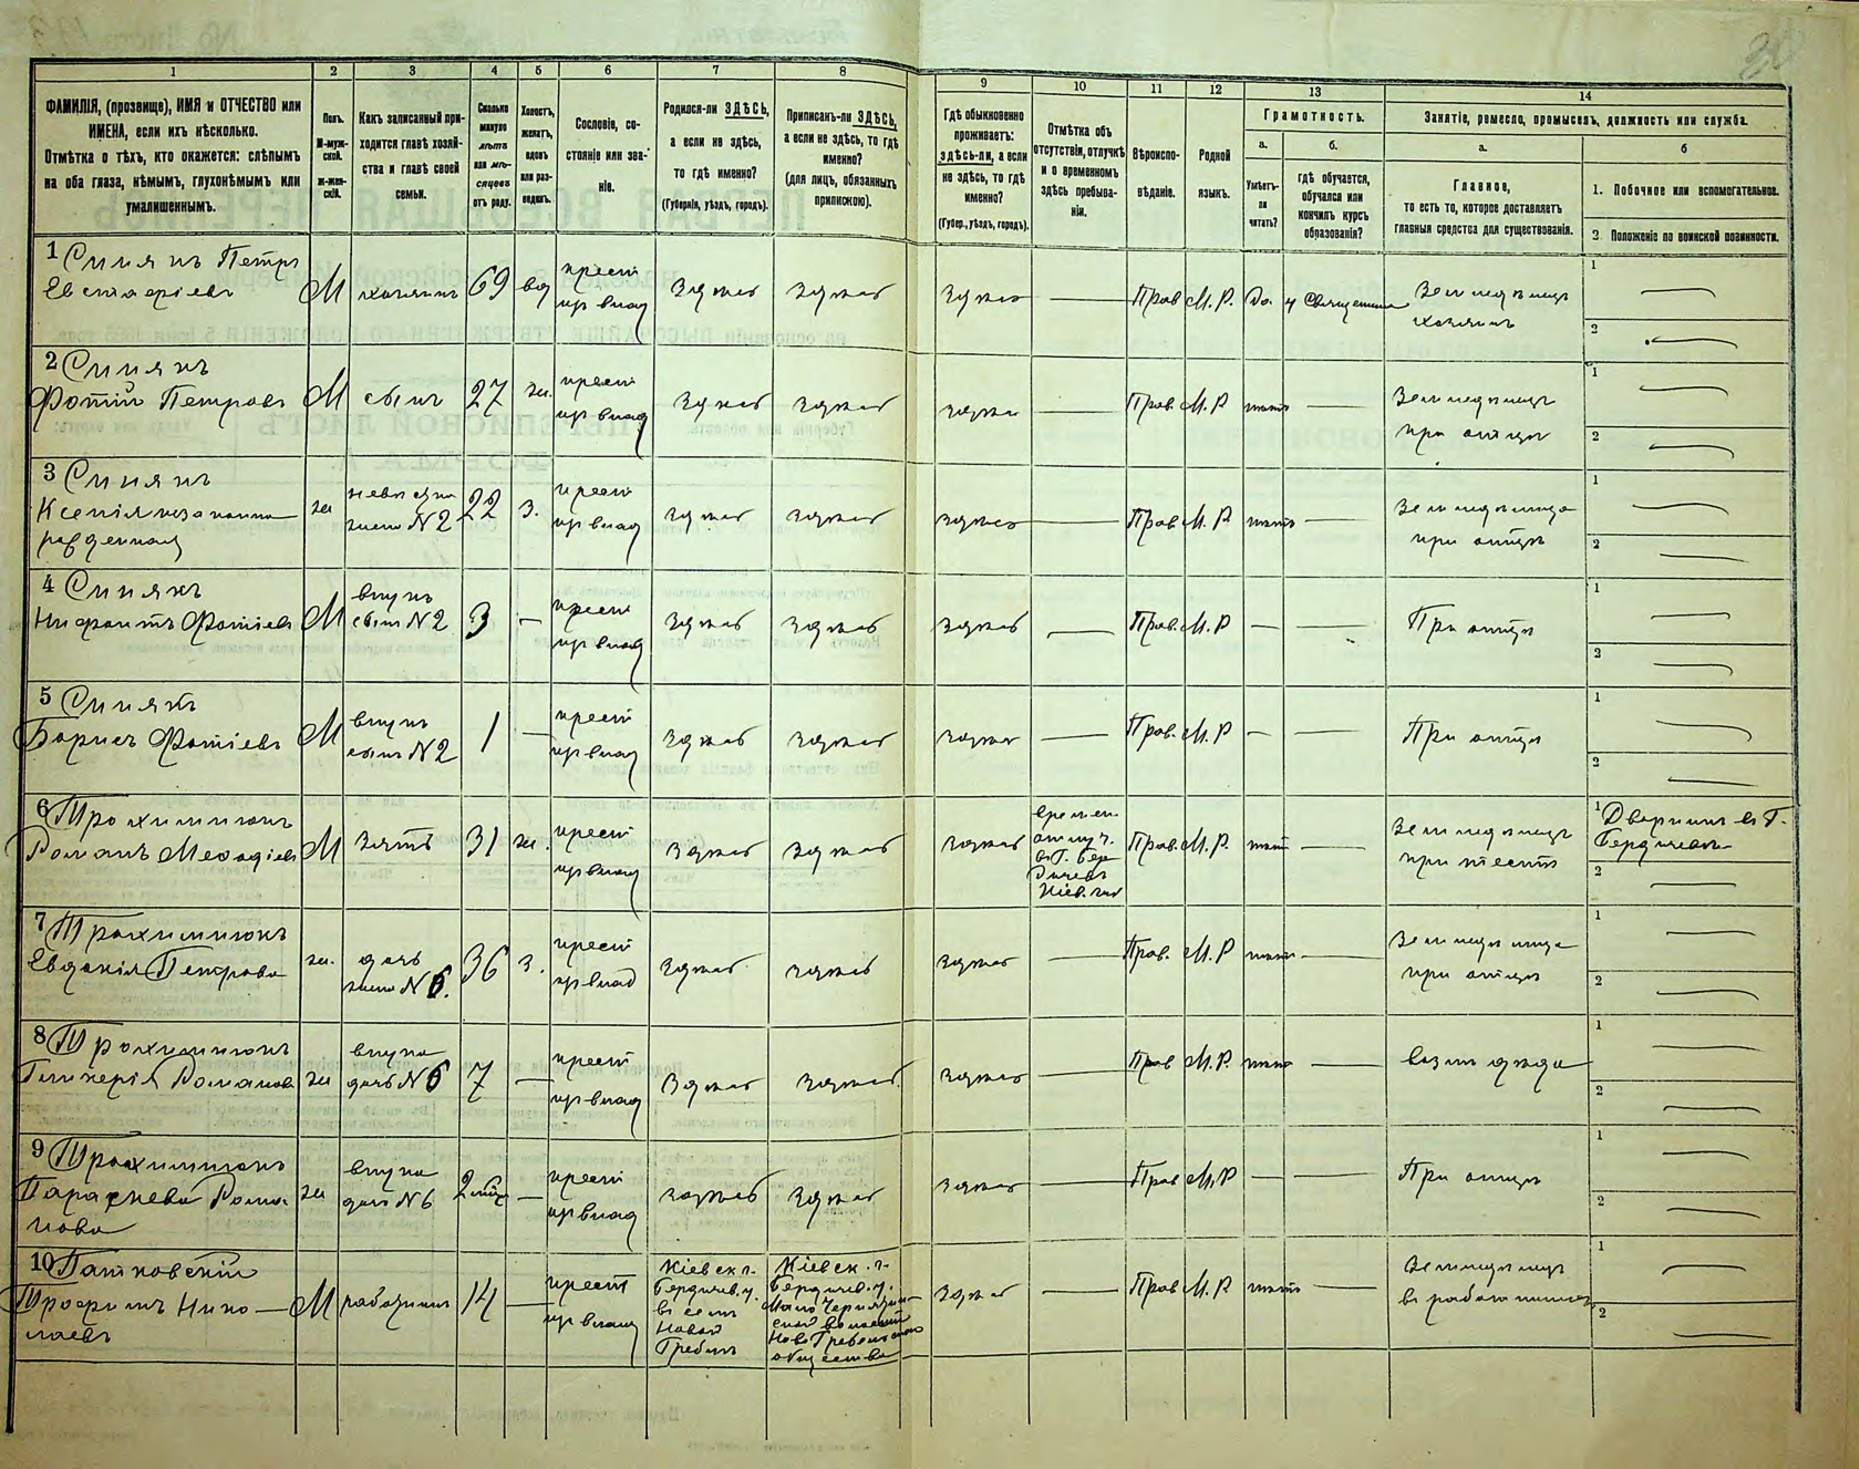 1 2 3 4 5 6 7 8 9 10 11 12 13 14
ФАМИЛІЯ, (прозвище), ИМЯ и ОТЧЕСТВО или
ИМЕНА, если ихъ нѣсколько.
Отмѣтка о тѣхъ, кто окажется: слѣпымъ
на оба глаза, нѣмымъ, глухонѣмымъ или
умалишеннымъ.
Полъ.
М-муж-
ской.
Ж-жен-
скій.
Какъ записанный при-
ходится главѣ хозяй-
ства и главѣ своей
семьи.
Сколько
минуло
лѣтъ
или мѣ-
сяцевъ
отъ роду.
Холостъ,
женатъ,
вдовъ
или раз-
веденъ.
Сословіе, со-
стояніе или зва-
ніе.
Родился-ли ЗДѢСЬ,
а если не здѣсь,
то гдѣ именно?
(Губернія, уѣздъ, городъ).
Приписанъ-ли ЗДѢСЬ,
а если не здѣсь, то гдѣ
именно?
(для лицъ, обязанныхъ
припискою).
Гдѣ обыкновенно
проживаетъ:
здѣсь-ли, а если
не здѣсь, то гдѣ
именно?
(Губер., уѣздъ, городъ).
Отмѣтка объ
отсутствіи, отлучкѣ
и о временномъ
здѣсь пребыва-
ніи.
Вѣроиспо-
вѣданіе.
Родной
языкъ.
Грамотность.
а.
Умѣетъ-
ли
читать?
б.
гдѣ обучается,
обучался или
кончилъ курсъ
образованія?
Занятіе, ремесло, промыселъ, должность или служба.
а.
Главное,
то есть то, которое доставляетъ
главныя средства для существованія.
б
1. Побочное или вспомогательное.
2. Положеніе по воинской повинности.
1 Синякъ Петръ
Евстафіевъ
М хозяинъ 69 вд крест
здѣсь здѣсь здѣсь — Прав М.Р. да у Священника Земледѣлецъ
хозяинъ
1 —
2 —
2 Синякъ
Фотій Петровъ М сынъ 27 ж. крест
здѣсь здѣсь здѣсь — Прав. М.Р нѣтъ — Земледѣлецъ
при отцѣ
1 —
2 —
3 Синякъ
Ксенія незаконно
рожденная
ж невѣстка
жена N2 22 з. крест
здѣсь здѣсь здѣсь — Прав. М.Р нѣтъ —
при отцѣ
1 —
2 —
4 Синякъ
Нифонтъ Фотіевъ М внукъ
сынъ N2 3 — крест
здѣсь здѣсь здѣсь — Прав. М.Р — — При отцѣ
1 —
2 —
5 Синякъ
Борисъ Фотіевъ М внукъ
сынъ N2 1 — крест
здѣсь здѣсь здѣсь — Прав. М.Р — — При отцѣ
1 —
2 —
6 Трохимчукъ
Романъ Меѳодіевъ М Зять 31 ж. крест
здѣсь здѣсь здѣсь времен.
отлуч.
въ Г. Бер
дичевъ
Кіев. губ
Прав. М.Р. нѣт — Земледѣлецъ
при тестѣ
1 Дворникъ въ Г.
Бердичевѣ
2 —
7 Трохимчукъ
Евдокія Петрова ж. дочь
жена N 6. 36 з. крест
здѣсь здѣсь здѣсь — Прав. М.Р нѣтъ —
при отцѣ
1 —
2 —
8 Трохимчукъ
Гликерія Романова ж внучка
дочь N 6 7 — крест
здѣсь здѣсь здѣсь — Прав М.Р. нѣтъ —
1 —
2 —
9 Трохимчукъ
Параскева Рома
нова
ж внучка
дочь N 6 2 мѣс — крест
здѣсь здѣсь здѣсь — Прав М.Р — — При отцѣ
1 —
2 —
10 Патковскій
Трофимъ Нико—
лаевъ
М работникъ 14 — крест
Кіевск г.
Бердичев. у.
въ селѣ
Новой
Гребли
Кіевск. г.
Бердичев. у.
общества
здѣсь — Прав М.Р нѣтъ — Земледѣлецъ
1 —
2 —